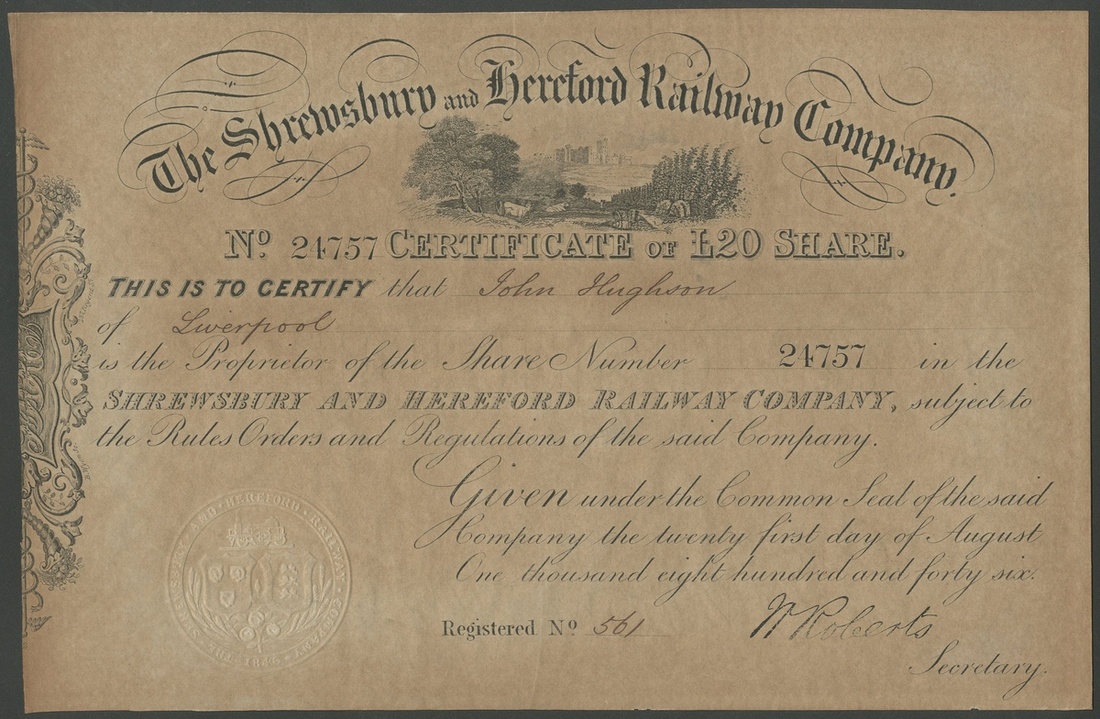 The Shrewsbury and Hereford Railway Company.
No. 24757 CERTIFICATE OF £20 SHARE.
THIS IS TO CERTIFY that John Hughson
of Liverpool
is the Proprietor of the Share Number 24757 in the
SHREWSBURY AND HEREFORD RAILWAY COMPANY, subject to
the Rules Orders and Regulations of the said Company.
Given under the Common Seal of the said
Company the twenty first day of August
One thousand eight hundred and forty six.
Registered No. 561
W Roberts
Secretary.
THE SHREWSBURY AND HEREFORD RAILWAY COMPANY 1846